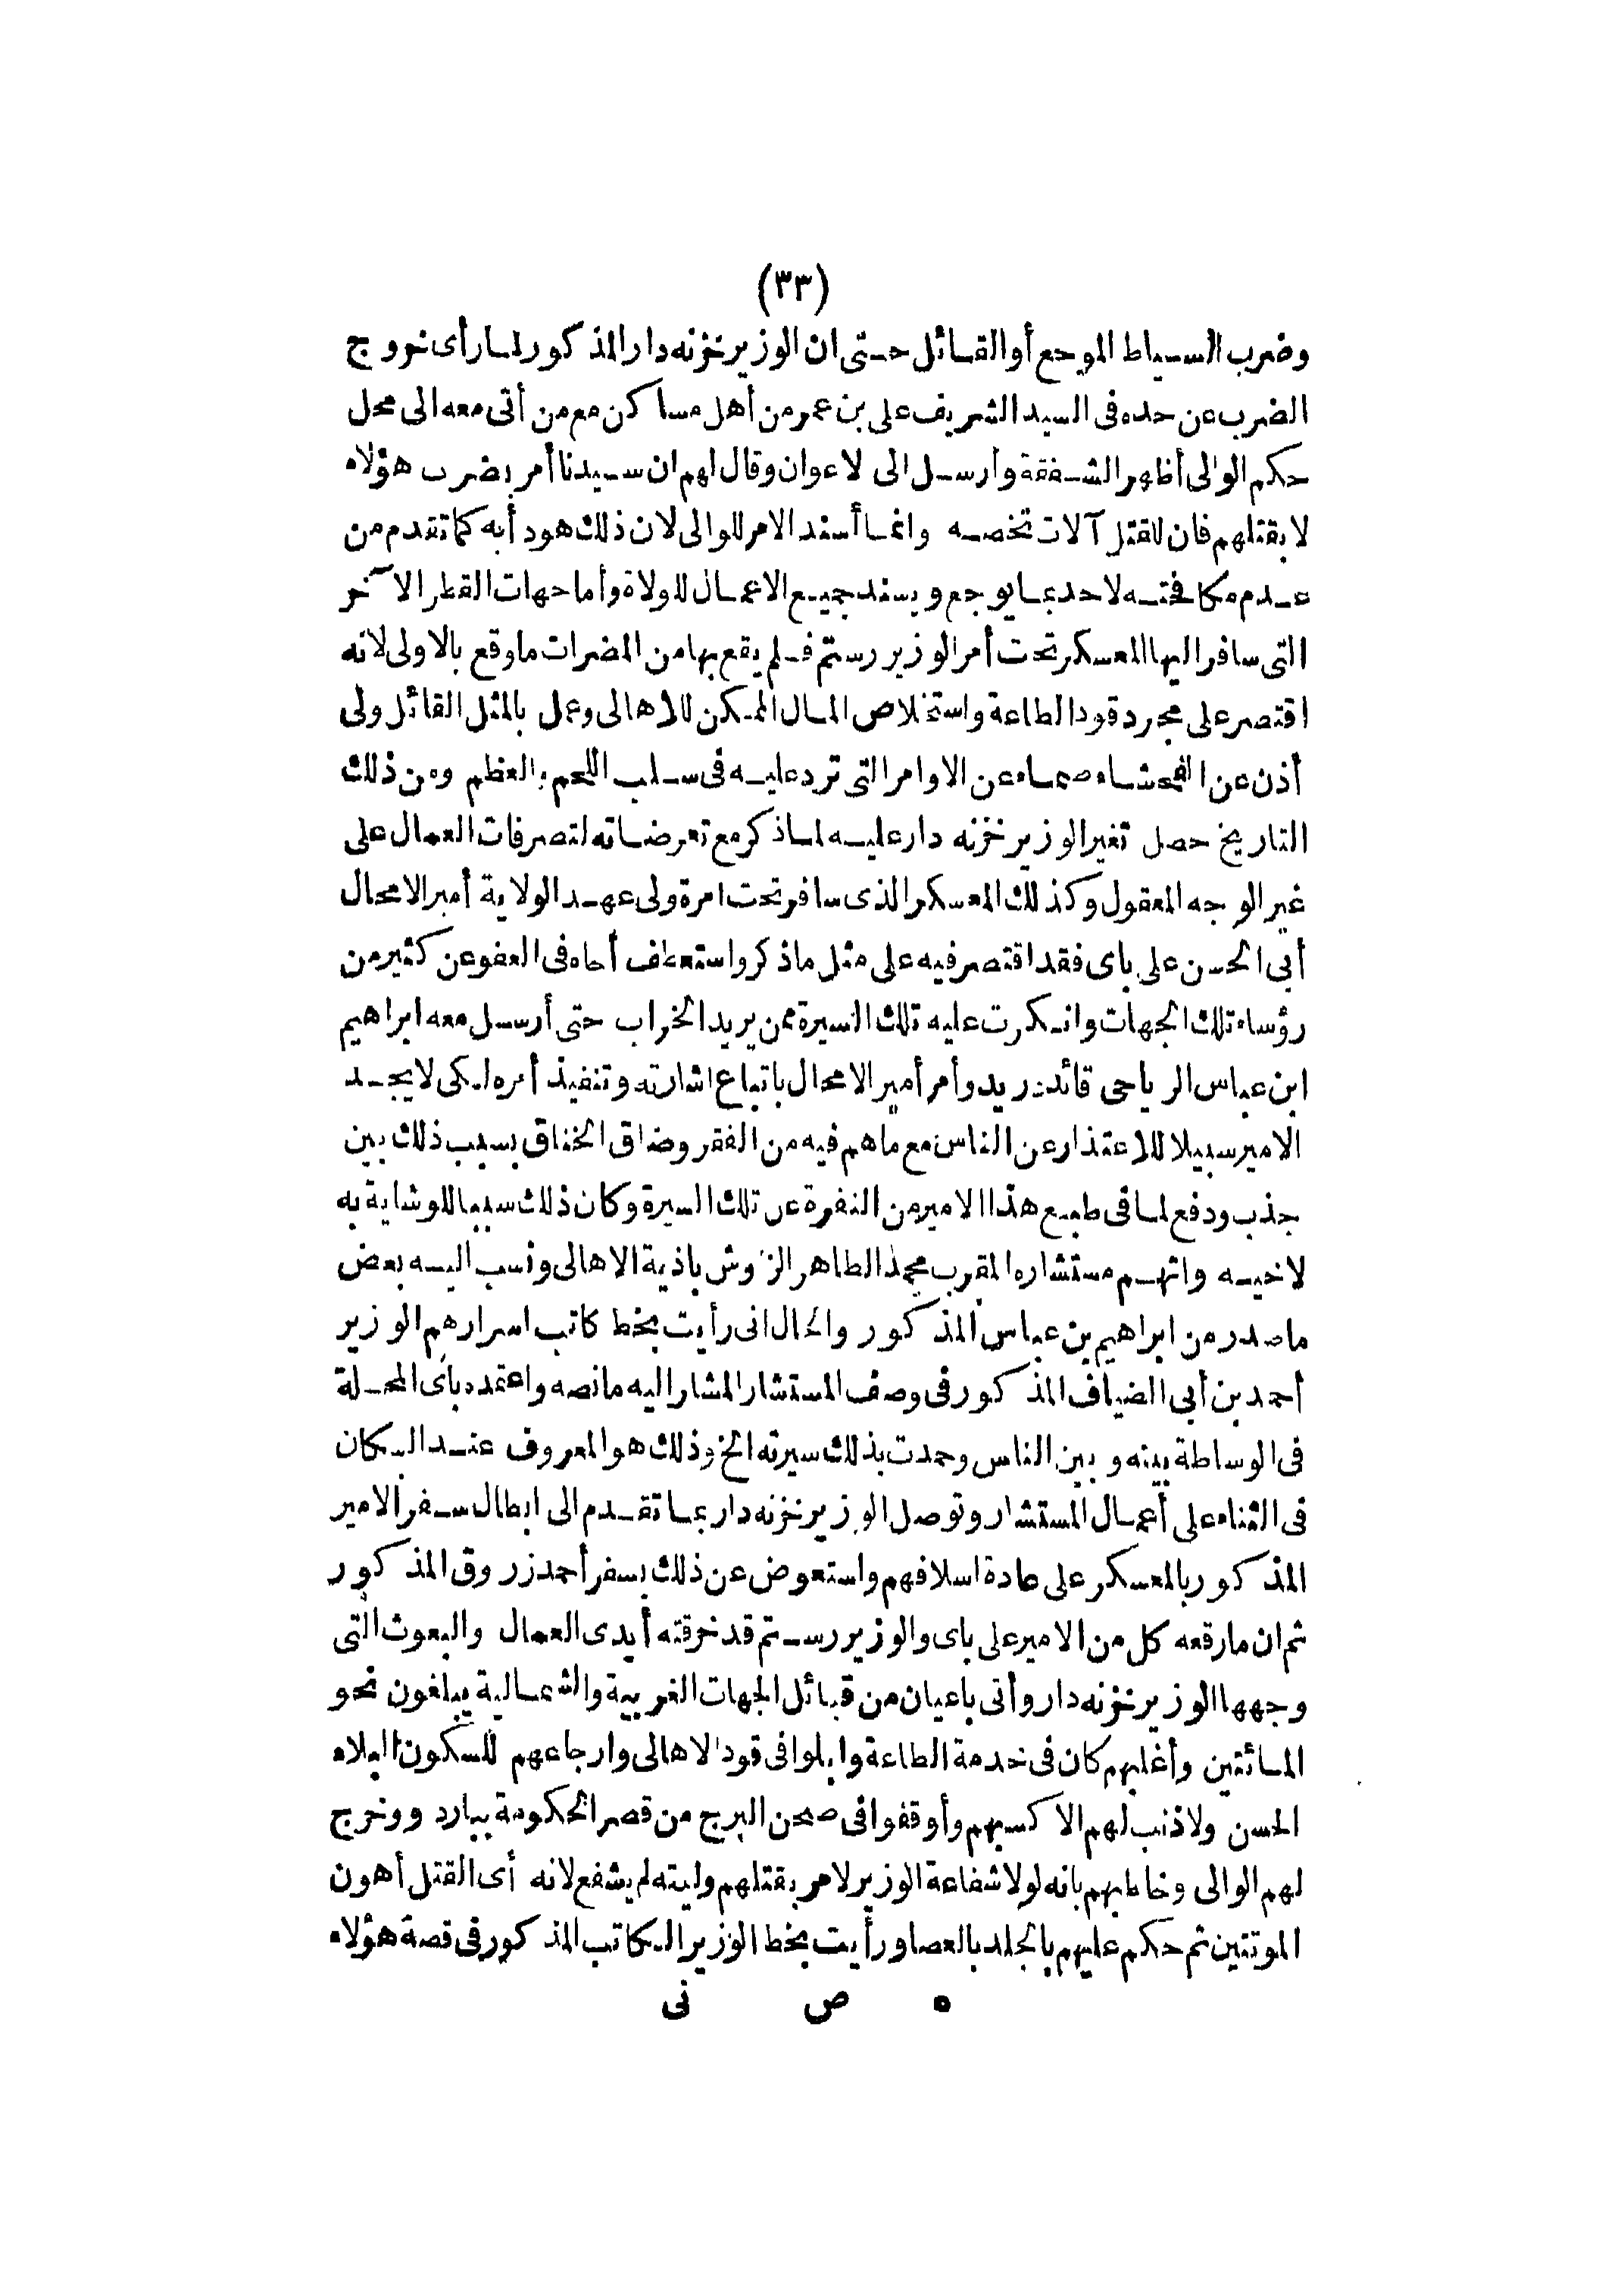 (٣٣)
وضرب السياط الموجع أو القاتل حتى ان الوزير خزنه دار المذكور لما رأى خروج
الضرب عن حده فى السيد الشريف على بن عمر من أهل مساكن مع من أتى معه الى محل
حكم الوالى أظهر الشفقة وأرسل الى لاعوان وقال لهم ان سيدنا أمر بضرب هؤلاء
لا بقتلهم فان للقتل آلات تخصه وانما أسند الامر للوالى لان ذلك هو دأبه كما تقدم من
عدم مكافحته لاحد بما يوجع ويسند جميع الاعمال للولاة وأما جهات القطر الآخر
التى سافر اليها المعسكر تحت أمر الوزير رستم فلم يقع بها من المضرات ما وقع بالاولى لانه
اقتصر على مجرد قود الطاعة واستخلاص المال الممكن للاهالى وعمل بالمثل القائل ولى
أذن عن الفحشاء صماء عن الاوامر التى ترد عليه فى سلب اللحم والعظم ومن ذلك
التاريخ حصل تغير الوزير خزنه دار عليه لما ذكر مع تعرضاته لتصرفات العمال على
غير الوجه المعقول وكذلك المعسكر الذى سافر تحت امرة ولى عهد الولاية أمير الامحال
أبى الحسن على باى فقد اقتصر فيه على مثل ما ذكر واستعطف أخاه فى العفو عن كثير من
رؤساء تلك الجهات وانكرت عليه تلك السيرة ممن يريد الخراب حتى أرسل معه ابراهيم
ابن عباس الرياحى قائد دريد وأمر أمير الامحال باتباع اشارته وتنفيذ أمره لكى لا يجد
الامير سبيلا للاعتذار عن الناس مع ما هم فيه من الفقر وضاق الخناق بسبب ذلك بين
جذب ودفع لما فى طبع هذا الامير من النفرة عن تلك السيرة وكان ذلك سببا للوشاية به
لاخيه واتهم مستشاره المقرب محمد الطاهر الزاوش باذية الاهالى ونسب اليه بعض
ما صدر من ابراهيم بن عباس المذكور والحال انى رأيت بخط كاتب اسرارهم الوزير
أحمد بن أبى الضياف المذكور فى وصف المستشار المشار اليه ما نصه واعتمده باى المحلة
فى الوساطة بينه وبين الناس وحمدت بذلك سيرته الخ وذلك هو المعروف عند السكان
فى الثناء على أعمال المستشار وتوصل الوزير خزنه دار بما تقدم الى ابطال سفر الامير
المذكور بالمعسكر على عادة اسلافهم واستعوض عن ذلك بسفر أحمد زروق المذكور
ثم ان ما رقعه كل من الامير على باى والوزير رستم قد خرقته أيدى العمال والبعوث التى
وجهها الوزير خزنه دار وأتى باعيان من قبائل الجهات الغربية والشمالية يبلغون نحو
المائتين وأغلبهم كان فى خدمة الطاعة وابلوا فى قود الاهالى وارجاعهم للسكون البلاء
الحسن ولا ذنب لهم الا كسبهم وأوقفوا فى صحن البرج من قصر الحكومة بباردو وخرج
لهم الوالى وخاطبهم بانه لولا شفاعة الوزير لامر بقتلهم وليته لم يشفع لانه أى القتل أهون
الموتتين ثم حكم عليهم بالجلد بالعصا ورأيت بخط الوزير الكاتب المذكور فى قصة هؤلاء
٥ ص نى